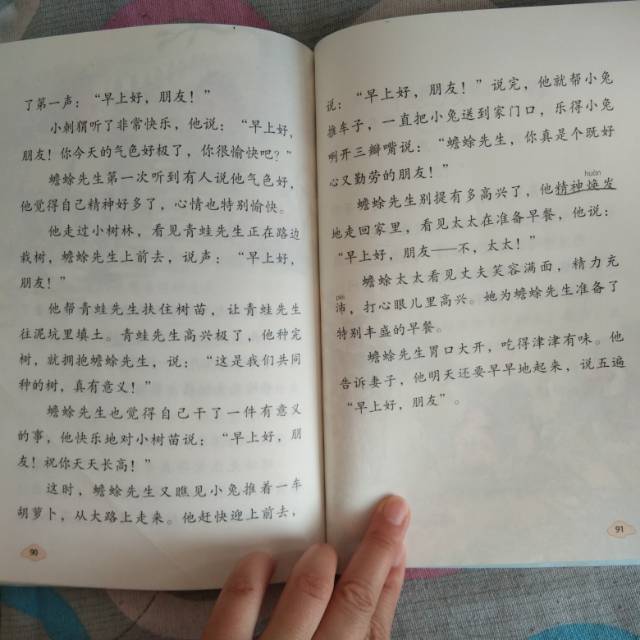 了第一声：“早上好，朋友！”
小刺猬听了非常快乐，他说：“早上好，
朋友！你今天的气色好极了，你很愉快吧？”
蟾蜍先生第一次听到有人说他气色好，
他觉得自己精神好多了，心情也特别愉快。
他走过小树林，看见青蛙先生正在路边
栽树，蟾蜍先生上前去，说声：“早上好，
朋友！”
他帮青蛙先生扶住树苗，让青蛙先生
往泥坑里填土。青蛙先生高兴极了，他种完
树，就拥抱蟾蜍先生，说：“这是我们共同
种的树，真有意义！”
蟾蜍先生也觉得自己干了一件有意义
的事，他快乐地对小树苗说：“早上好，朋
友！祝你天天长高！”
这时，蟾蜍先生又瞧见小兔推着一车
胡萝卜，从大路上走来。他赶快迎上前去，
90
说：“早上好，朋友！”说完，他就帮小兔
推车子，一直把小兔送到家门口，乐得小兔
咧开三瓣嘴说：“蟾蜍先生，你真是个既好
心又勤劳的朋友！”
huàn
蟾蜍先生别提有多高兴了，他精神焕发
地走回家里，看见太太在准备早餐，他说：
“早上好，朋友——不，太太！”
蟾蜍太太看见丈夫笑容满面，精力充
pèi
沛，打心眼儿里高兴。她为蟾蜍先生准备了
特别丰盛的早餐。
蟾蜍先生胃口大开，吃得津津有味。他
告诉妻子，他明天还要早早地起来，说五遍
“早上好，朋友”。
91